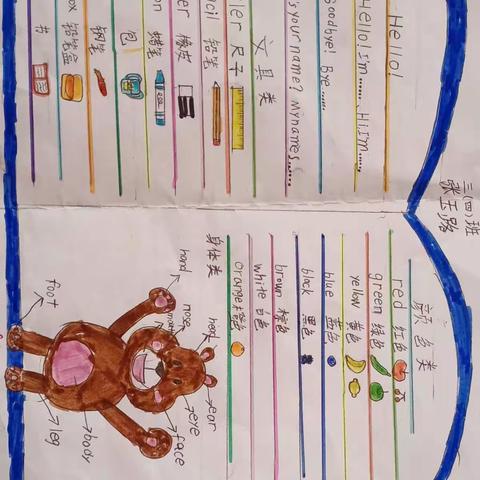 三(四)班
Hello!
Hello! I'm...... Hi, I'm......
Goodbye! Bye......
's your name? My name's......
文具类
ler 尺子
cil 铅笔
er 橡皮
on 蜡笔
包
钢笔
ox 铅笔盒
书
颜色类
red 红色
green 绿色
yellow 黄色
blue 蓝色
black 黑色
brown 棕色
white 白色
orange 橙色
身体类
head
ear
eye
face
nose
hand
body
leg
foot